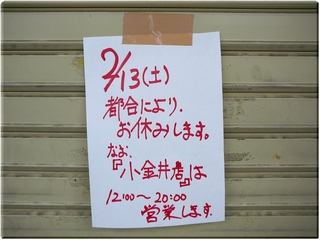 2/13(土)
都合により、
お休みします。
なお、
『小金井店』は
12:00〜20:00
営業します。